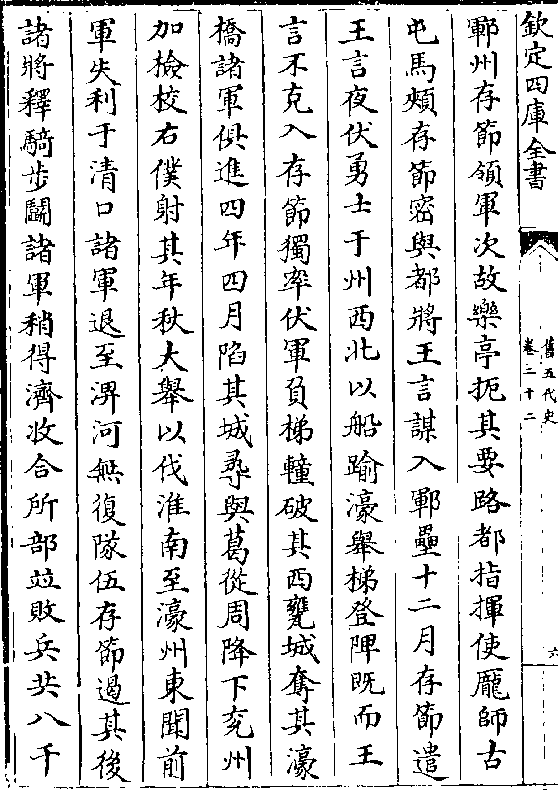 欽定四庫全書
舊五代史
卷二十二
六
鄆州存節領軍次故樂亭扼其要路都指揮使龐師古
屯馬頰存節密與都將王言謀入鄆壘十二月存節遣
王言夜伏勇士于州西北以船踰濠舉梯登陴既而王
言不克入存節獨率伏軍負梯轒破其西甕城奪其濠
橋諸軍俱進四年四月陷其城尋與葛從周降下兗州
加檢校右僕射其年秋大舉以伐淮南至濠州東聞前
軍失利于清口諸軍退至淠河無復隊伍存節過其後
諸將釋騎步鬬諸軍稍得濟收合所部並敗兵共八千